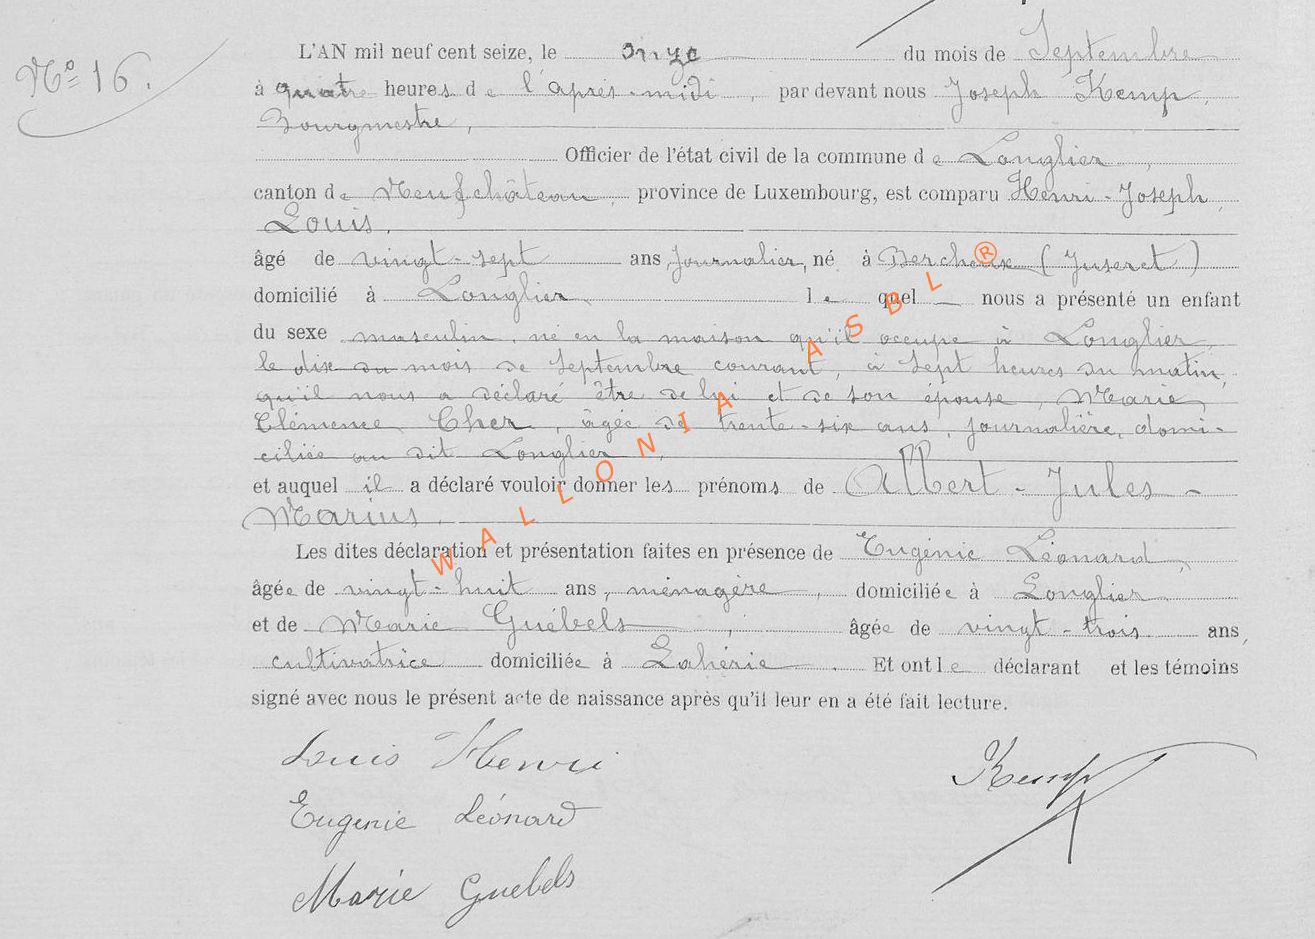 N° 16.
L'AN mil neuf cent seize, le onze du mois de Septembre
à quatre heures de l'après-midi, par devant nous Joseph Kemp,
Bourgmestre,
Officier de l'état civil de la commune de Longlier,
canton de Neufchâteau, province de Luxembourg, est comparu Henri-Joseph
Louis,
âgé de vingt-sept ans, journalier, né à Bercheux (Juseret)
domicilié à Longlier lequel nous a présenté un enfant
du sexe masculin, né en la maison qu'il occupe à Longlier,
le dix du mois de Septembre courant, à sept heures du matin,
qu'il nous a déclaré être de lui et de son épouse, Marie
Clémence Cher, âgée de trente-six ans, journalière, domi-
ciliée au dit Longlier,
et auquel il a déclaré vouloir donner les prénoms de Albert-Jules-
Marius.
Les dites déclaration et présentation faites en présence de Eugénie Léonard,
âgée de vingt-huit ans, ménagère, domiciliée à Longlier
et de Marie Guébels, âgée de vingt-trois ans,
cultivatrice domiciliée à Lahérie. Et ont le déclarant et les témoins
signé avec nous le présent acte de naissance après qu'il leur en a été fait lecture.
Louis Henri
Kemp
Eugénie Léonard
Marie Guebels
WALLONIA ASBL ®